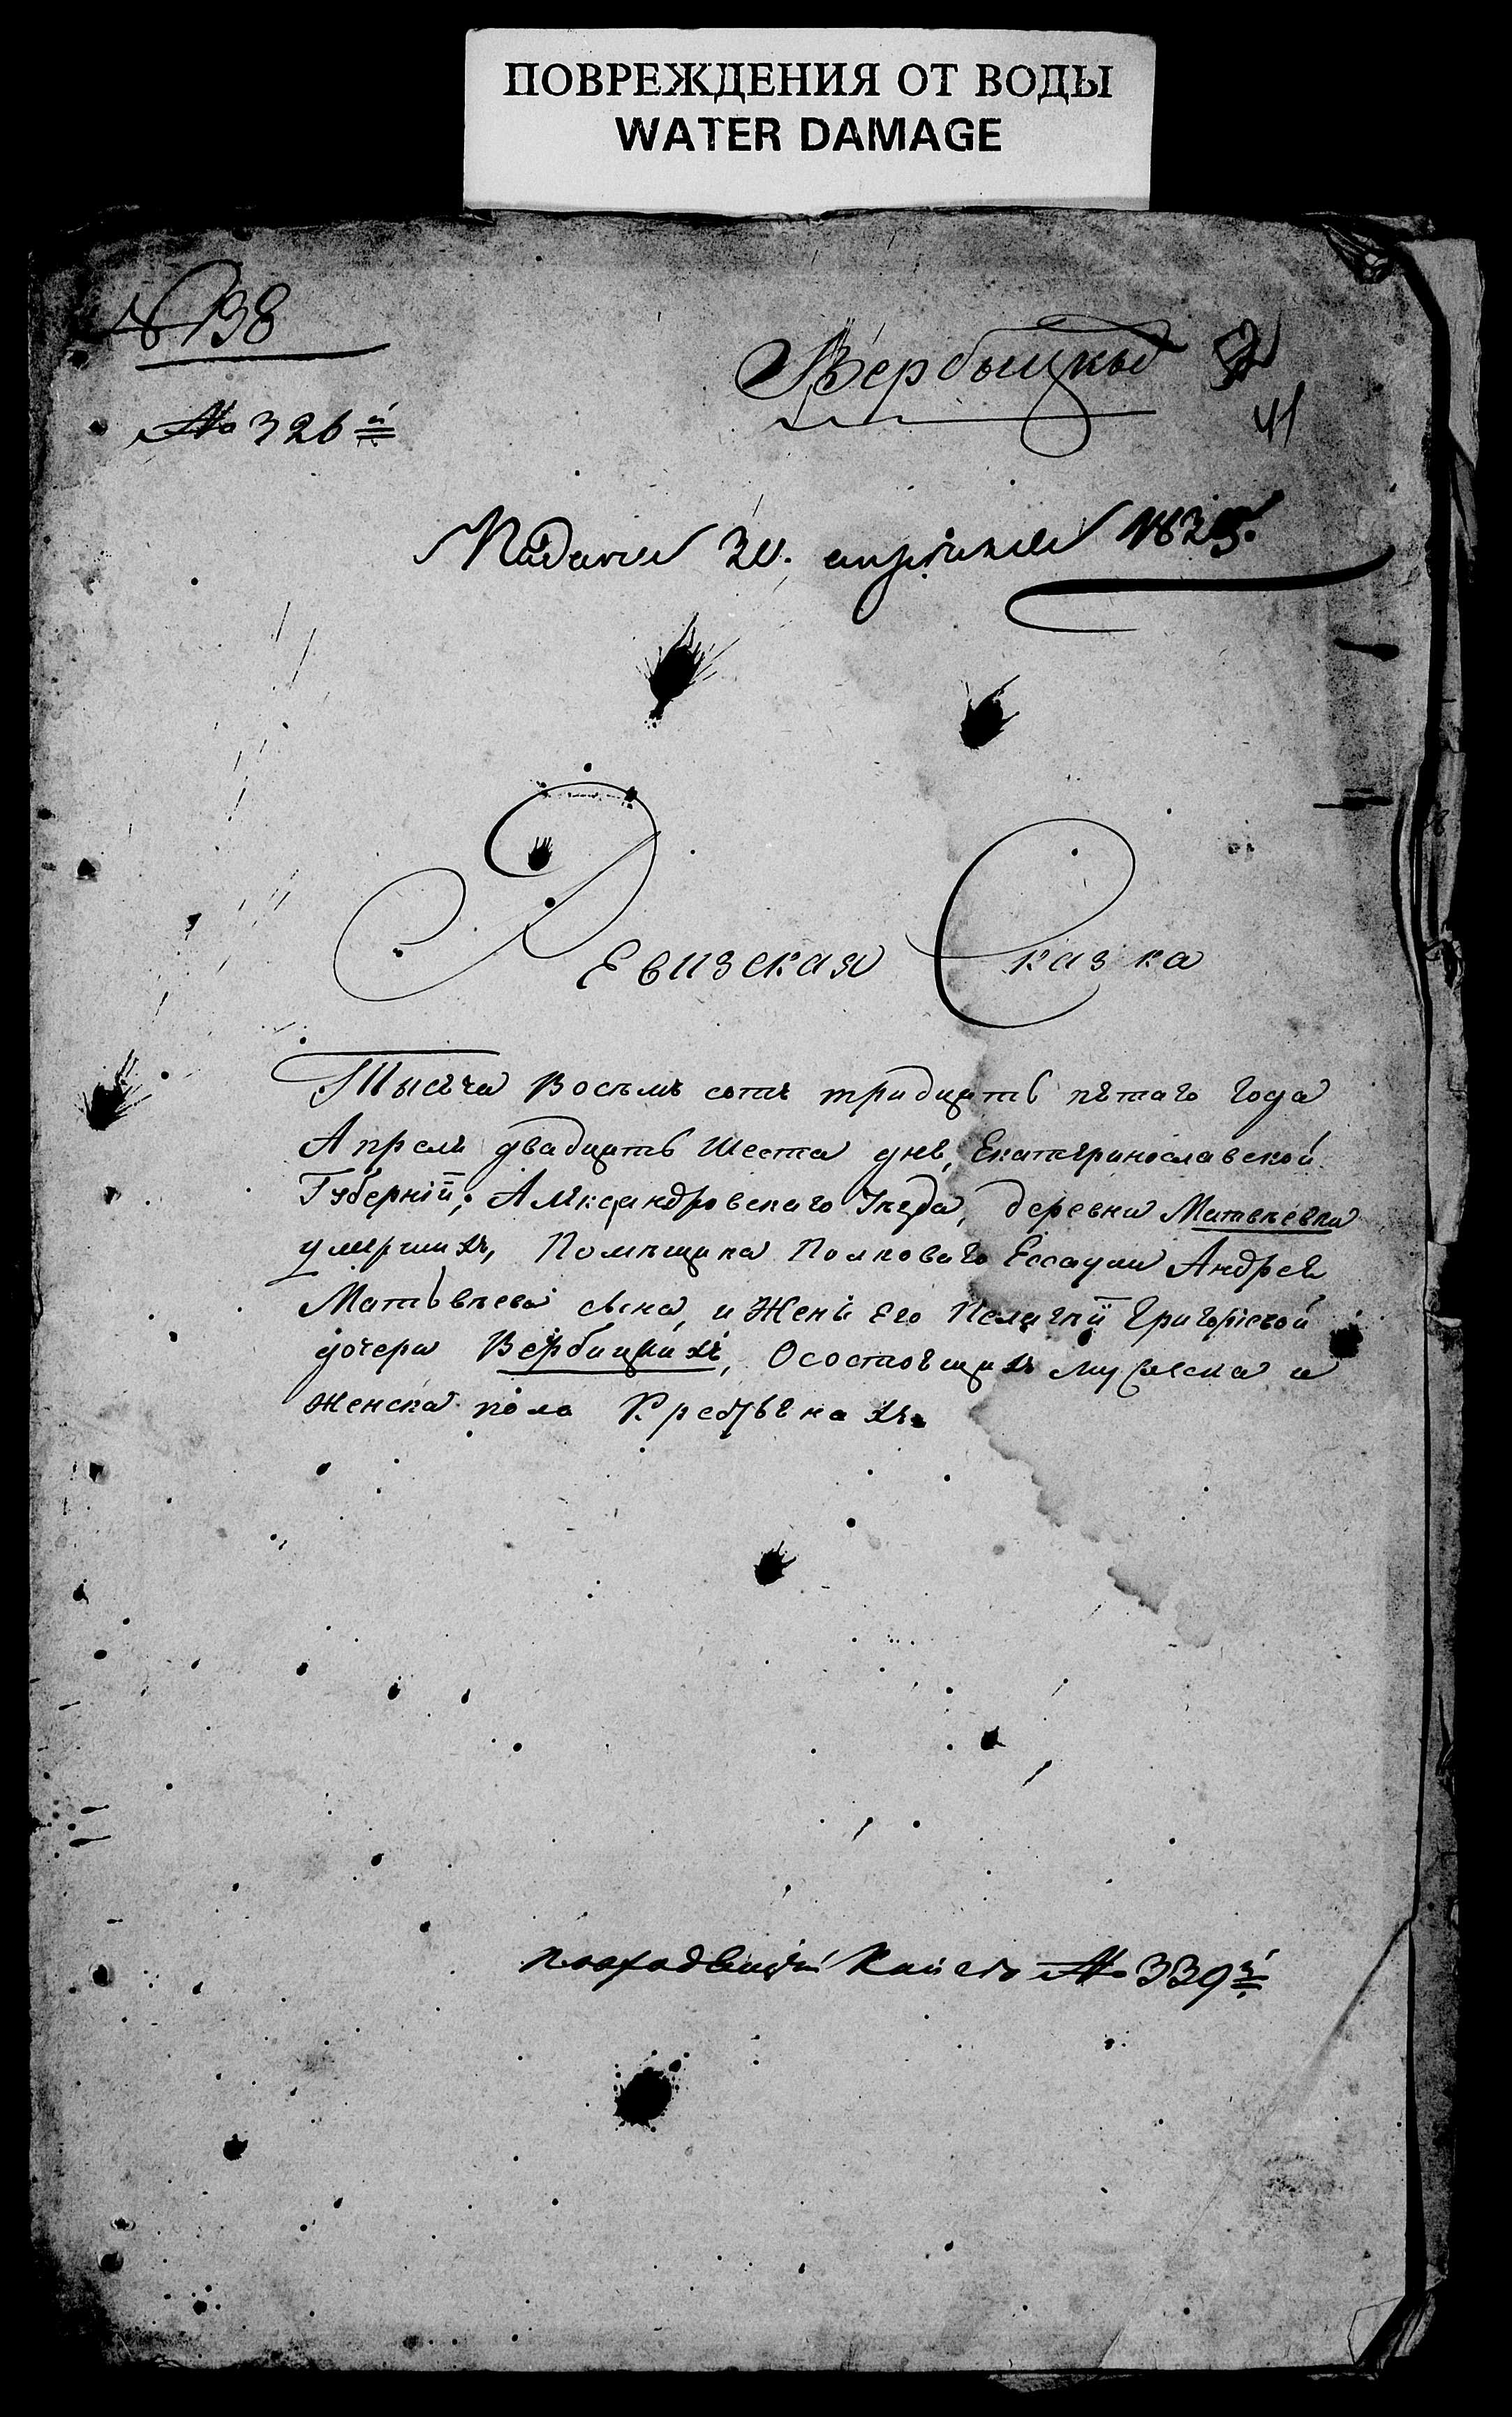 ПОВРЕЖДЕНИЯ ОТ ВОДЫ
WATER DAMAGE
№ 198
№ 326й
Вербицкы
41
Подана 30. апреля 1835.
Ревизская Сказка
Тысяча Восемь сотъ тридцать пятаго года
Апреля двадцать шеста дня, Екатеринославской
Губерніи, Александровскаго Уезда, деревни Матвѣевки
умершихъ, Помѣщика Полковаго Ессаула Андрея
Матвѣева сына, и Жены Его Пелагіи Григорьевой
дочери Вербицкихъ, О состоящихъ мужеска и
женска пола Крестьянахъ.
№ 339й